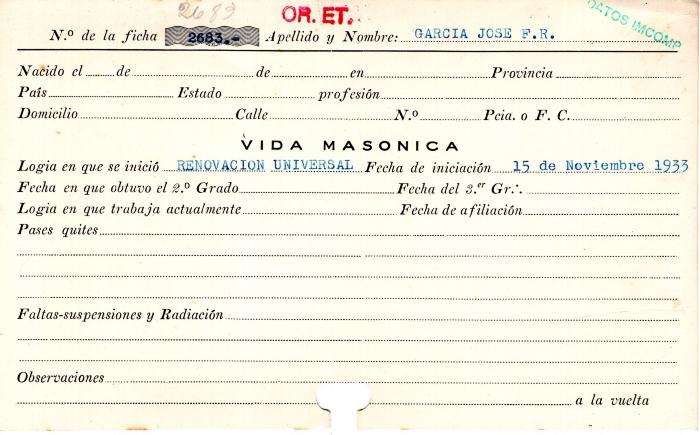 2683
OR. ET.
DATOS IMCOMP
N.º de la ficha 2683.- Apellido y Nombre: GARCIA JOSE F.R.
Nacido el de de en Provincia
País Estado profesión
Domicilio Calle N.º Pcia. o F. C.
VIDA MASONICA
Logia en que se inició RENOVACION UNIVERSAL Fecha de iniciación 15 de Noviembre 1933
Fecha en que obtuvo el 2.º Grado Fecha del 3.er Gr∴
Logia en que trabaja actualmente Fecha de afiliación
Pases quites
Faltas-suspensiones y Radiación
Observaciones
a la vuelta